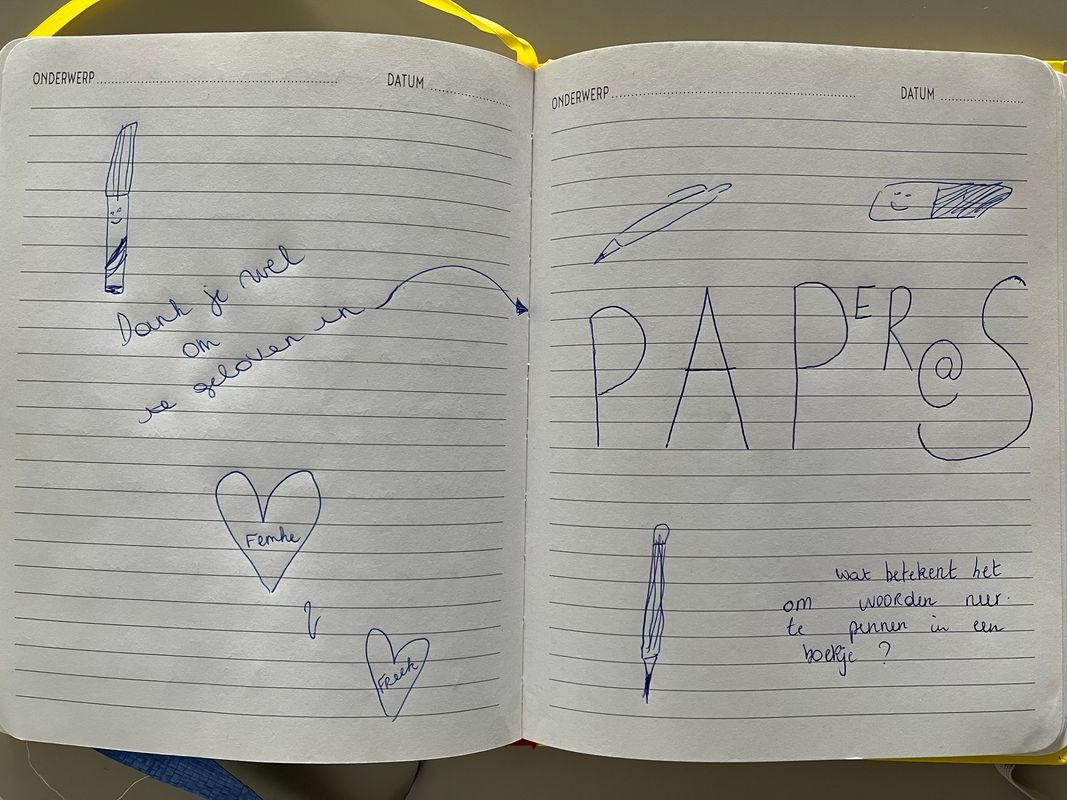 ONDERWERP
DATUM
Dank je wel
om
te geloven in
Femke
Freek
ONDERWERP
DATUM
PAPER@S
wat betekent het
om woorden neer
te pennen in een
boekje ?